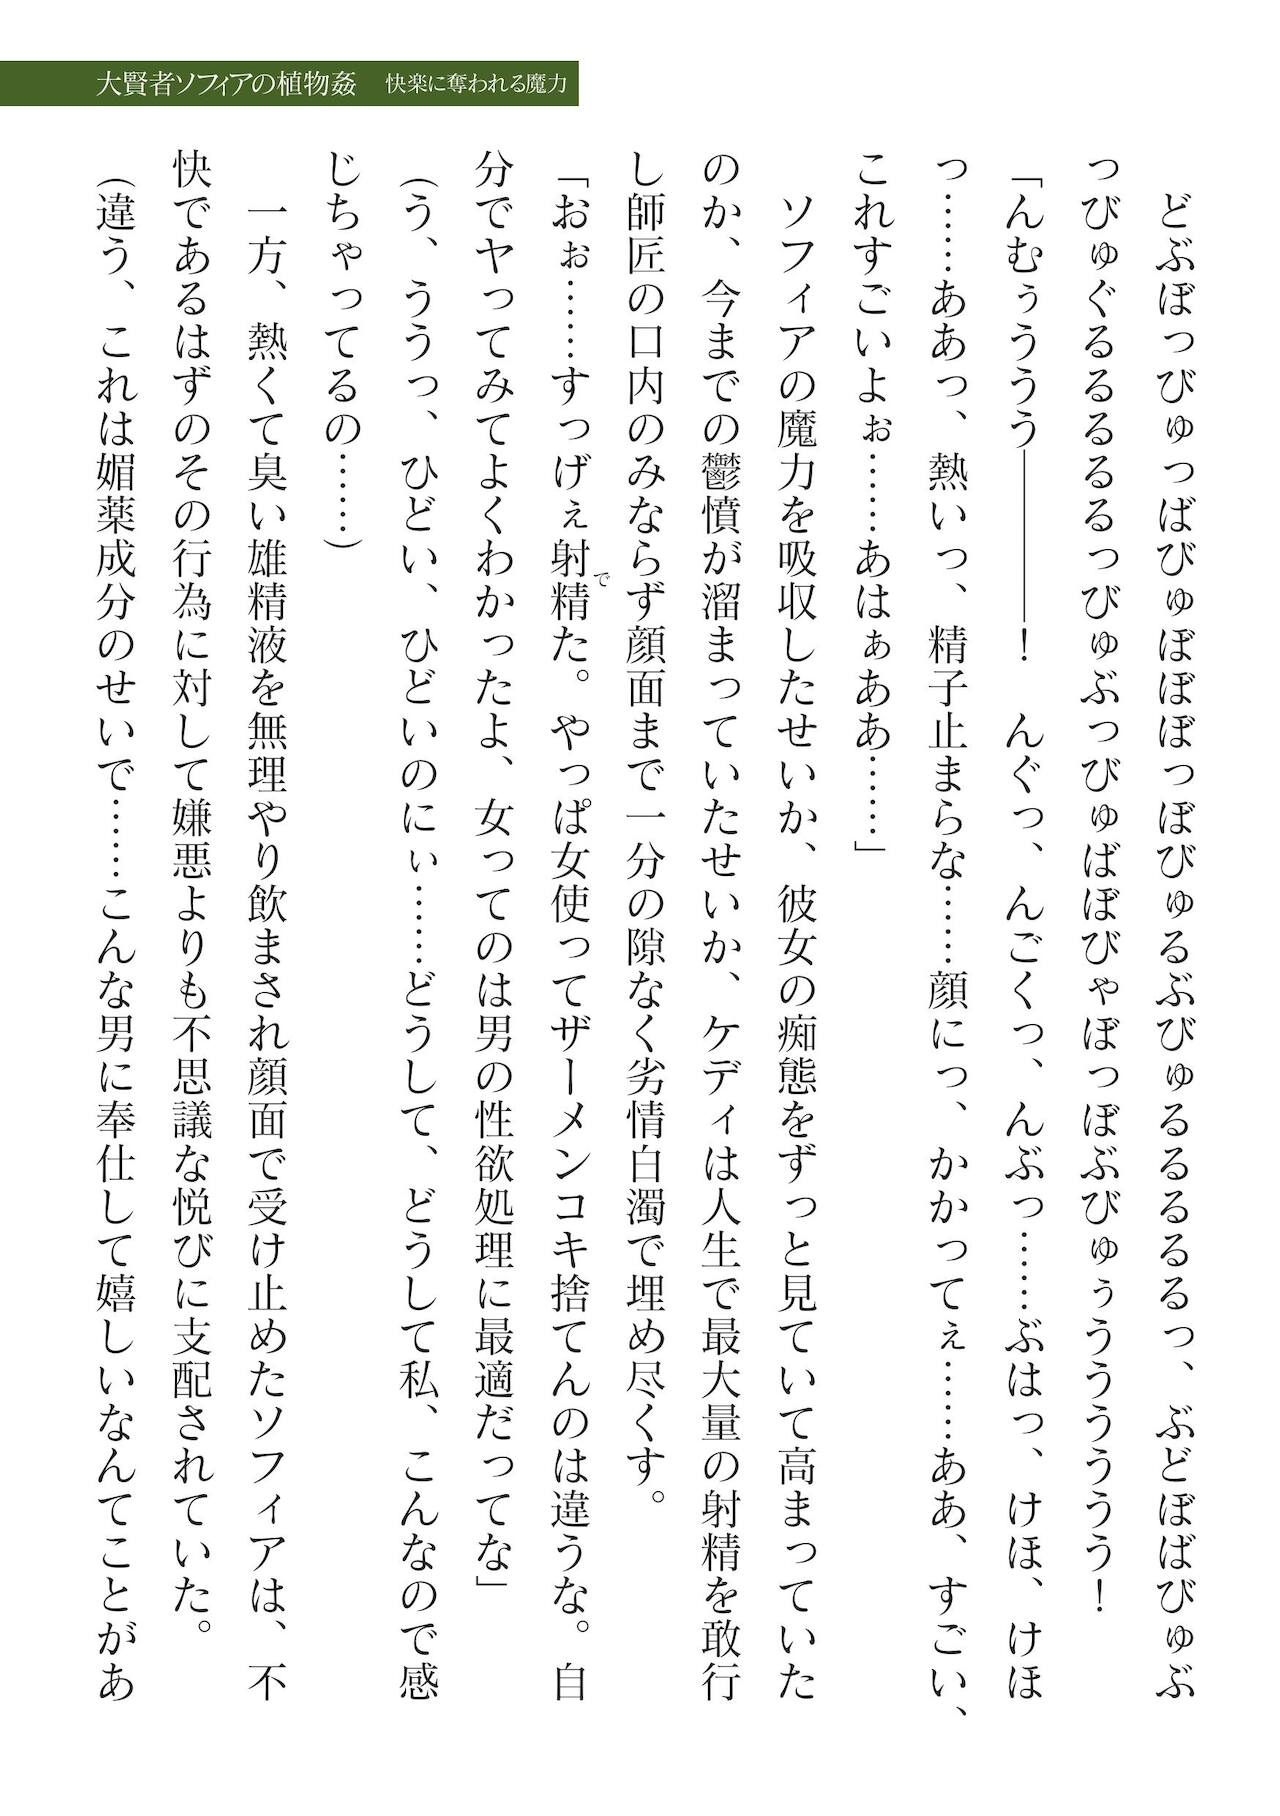 大賢者ソフィアの植物姦　快楽に奪われる魔力
どぶぼっびゅっばびゅぼぼぼっぼびゅるぶびゅるるるるっ、ぶどぼばびゅぶ
っびゅぐるるるるるっびゅぶっびゅばぼびゃぼっぼぶびゅぅうううううう！
「んむぅううう――――！　んぐっ、んごくっ、んぶっ……ぶはっ、けほ、けほ
っ……ああっ、熱いっ、精子止まらな……顔にっ、かかってぇ……ああ、すごい、
これすごいよぉ……あはぁああ……」
ソフィアの魔力を吸収したせいか、彼女の痴態をずっと見ていて高まっていた
のか、今までの鬱憤が溜まっていたせいか、ケディは人生で最大量の射精を敢行
し師匠の口内のみならず顔面まで一分の隙なく劣情白濁で埋め尽くす。
「おぉ……すっげぇ射精た。やっぱ女使ってザーメンコキ捨てんのは違うな。自
で
分でヤってみてよくわかったよ、女ってのは男の性欲処理に最適だってな」
（う、ううっ、ひどい、ひどいのにぃ……どうして、どうして私、こんなので感
じちゃってるの……）
一方、熱くて臭い雄精液を無理やり飲まされ顔面で受け止めたソフィアは、不
快であるはずのその行為に対して嫌悪よりも不思議な悦びに支配されていた。
（違う、これは媚薬成分のせいで……こんな男に奉仕して嬉しいなんてことがあ